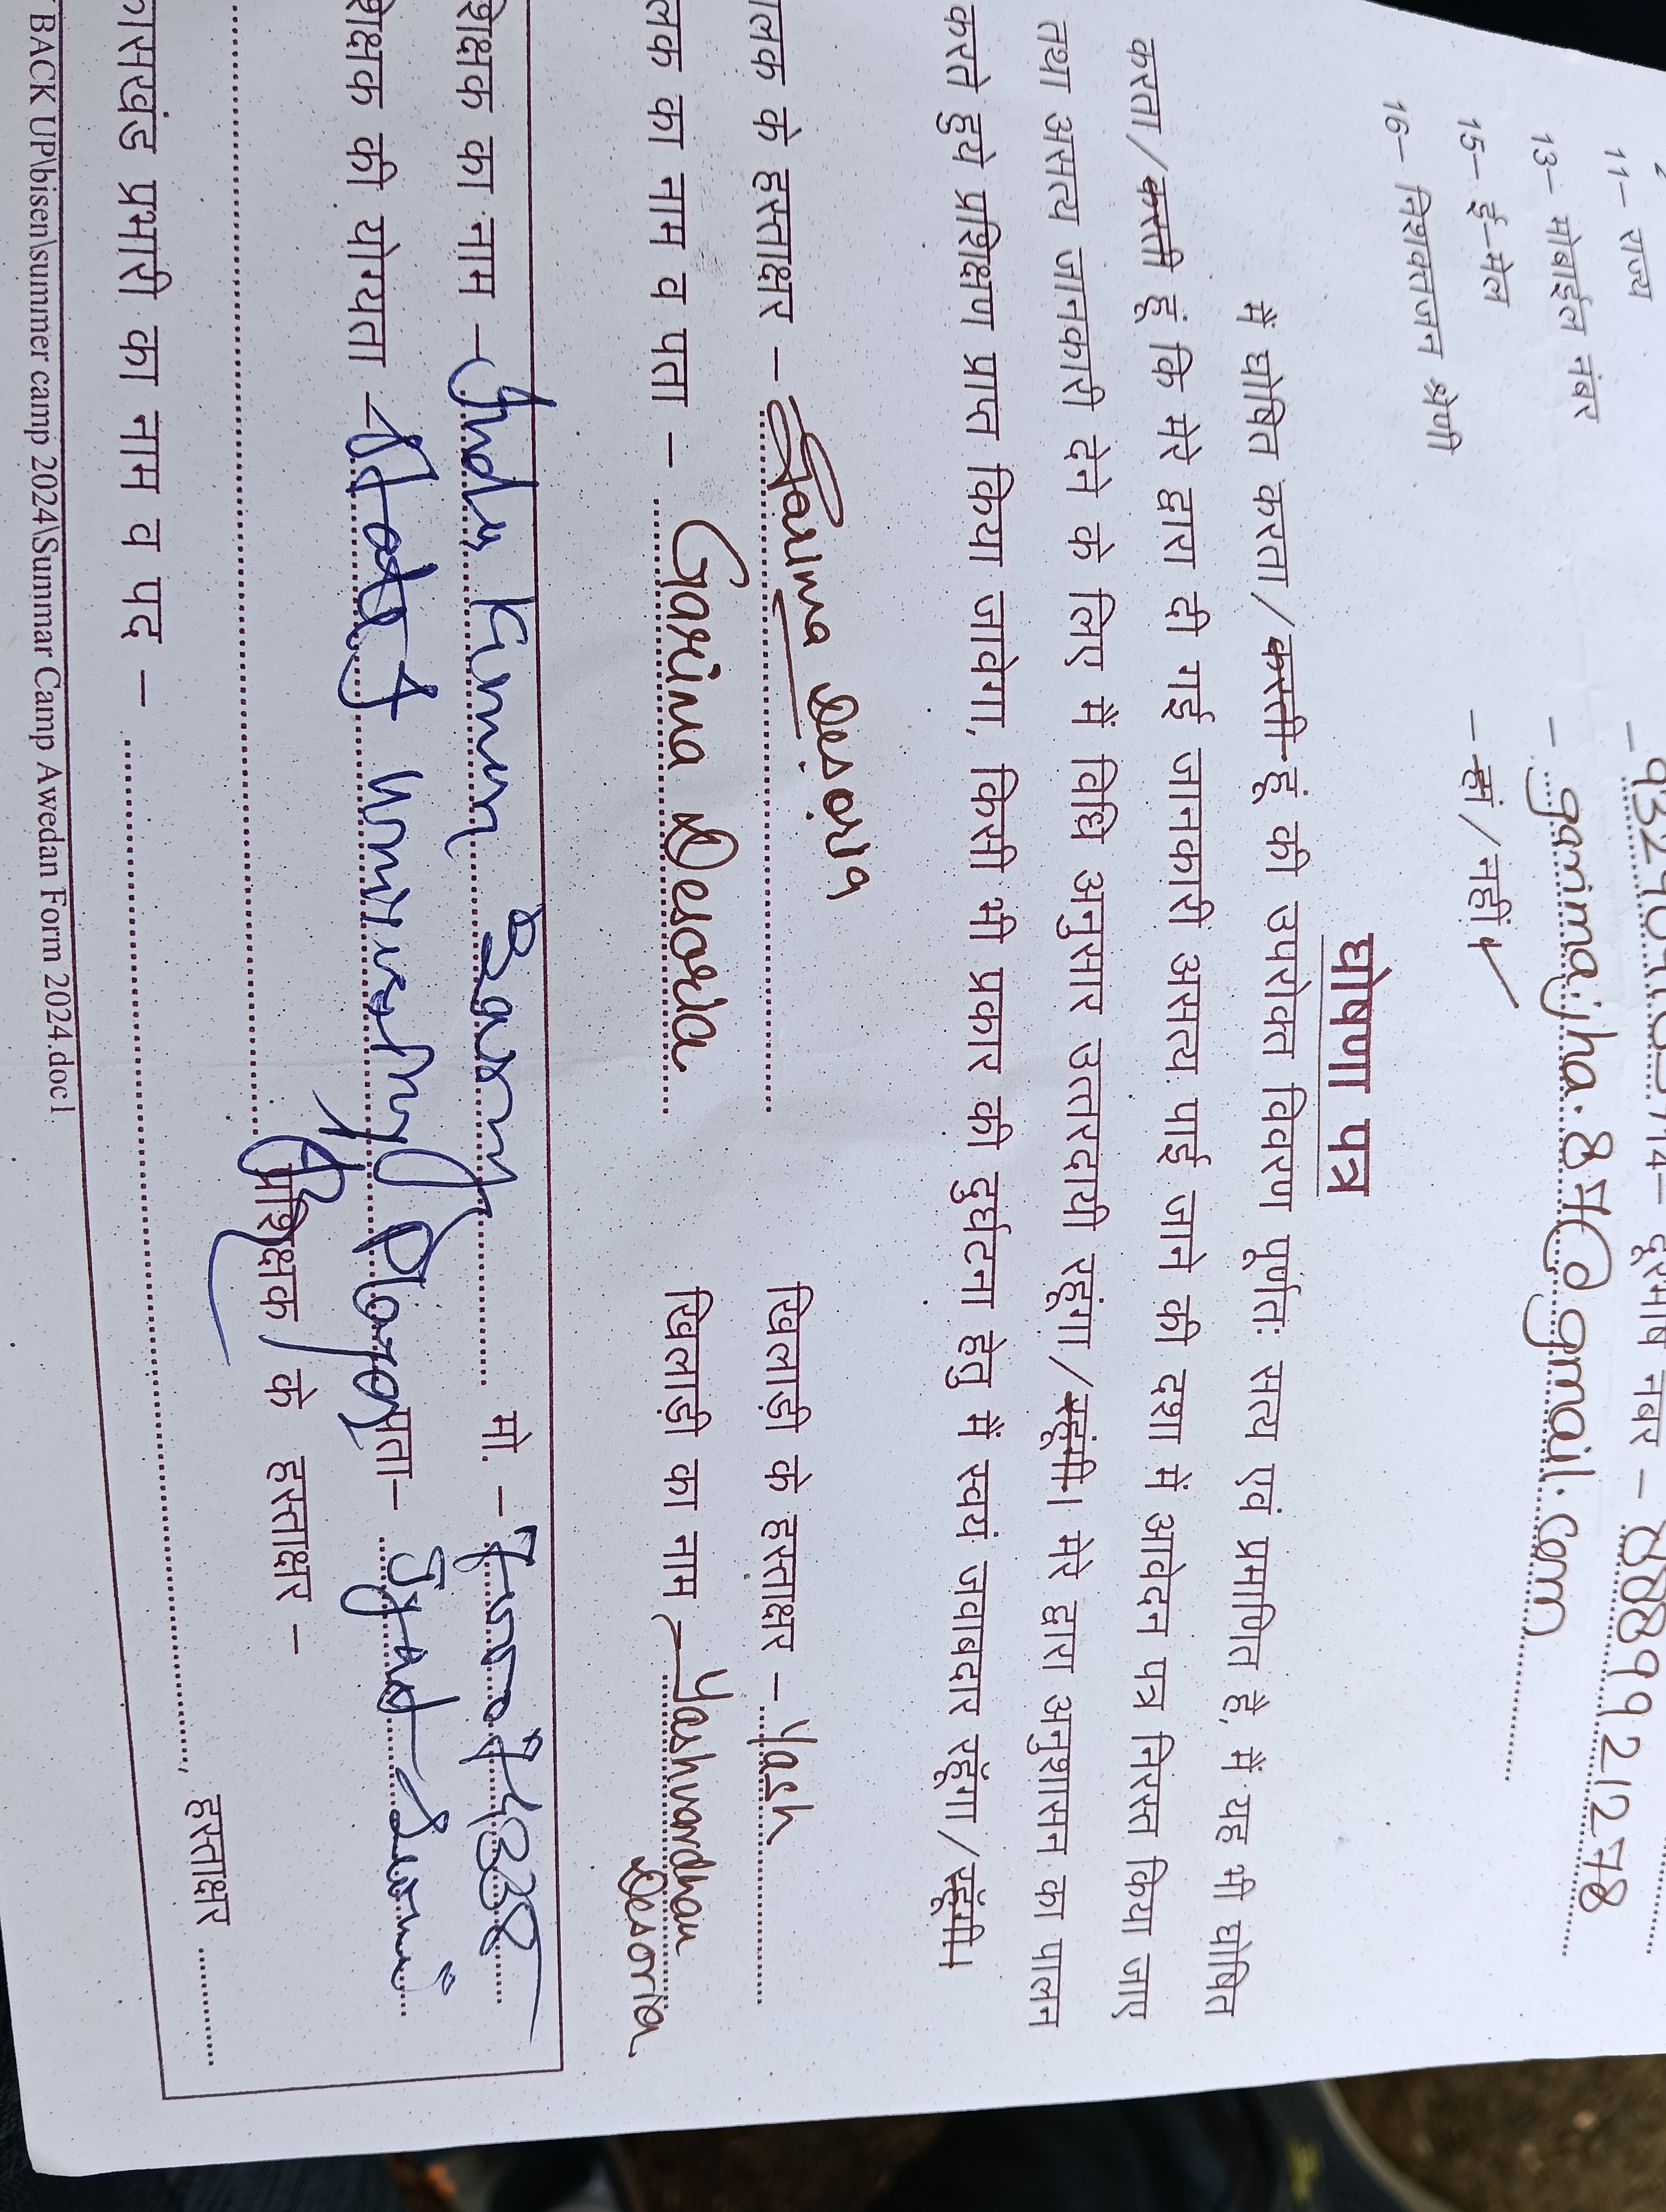 11– राज्य
13– मोबाईल नंबर दूरभाष नंबर –
15– ई–मेल – garimajha.84@gmail.com
16– निशक्तजन श्रेणी – हां / नहीं ✓
घोषणा पत्र
मैं घोषित करता / करती हूं की उपरोक्त विवरण पूर्णतः सत्य एवं प्रमाणित है, मैं यह भी घोषित
करता / करती हूं कि मेरे द्वारा दी गई जानकारी असत्य पाई जाने की दशा में आवेदन पत्र निरस्त किया जाए
तथा असत्य जानकारी देने के लिए मैं विधि अनुसार उत्तरदायी रहूंगा / रहूंगी। मेरे द्वारा अनुशासन का पालन
करते हुये प्रशिक्षण प्राप्त किया जावेगा, किसी भी प्रकार की दुर्घटना हेतु मैं स्वयं जवाबदार रहूंगा / रहूंगी।
लक के हस्ताक्षर – Garima Desoria खिलाड़ी के हस्ताक्षर – Yash
लक का नाम व पता – Garima Desoria खिलाड़ी का नाम – Yashvardhan
Desoria
शिक्षक का नाम – Kumar मो. –
शिक्षक की योग्यता – पता–
प्रशिक्षक के हस्ताक्षर –
कासखंड प्रभारी का नाम व पद – , हस्ताक्षर
BACK UP\bisen\summer camp 2024\Summar Camp Awedan Form 2024.doc1